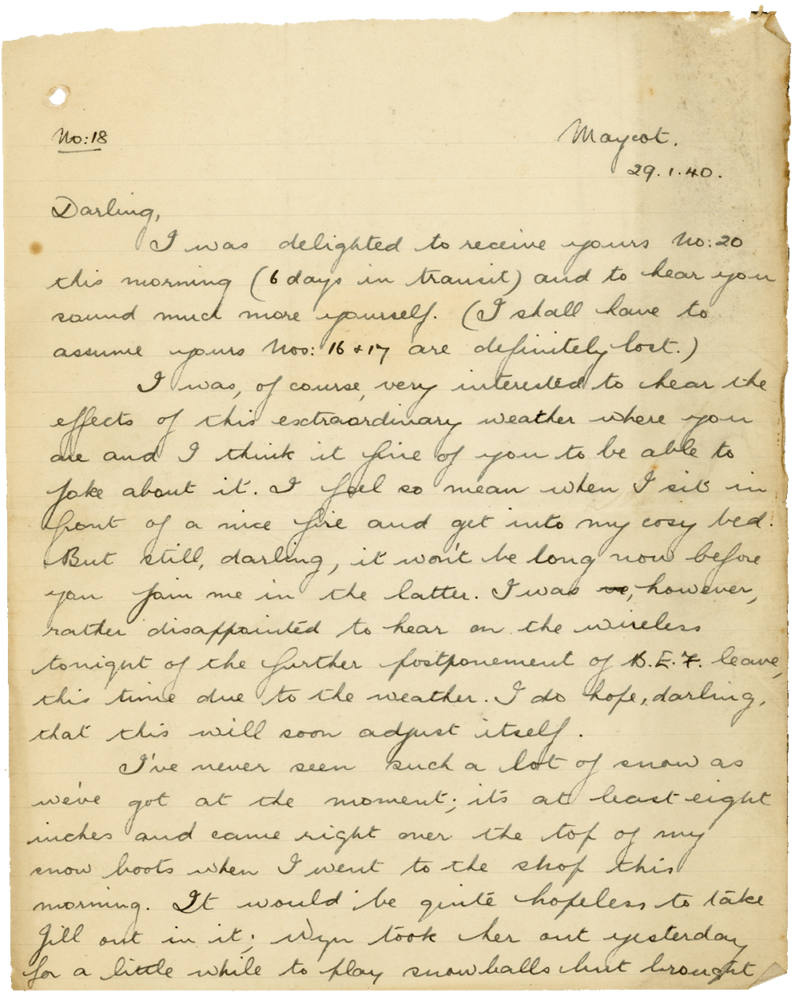 No: 18
Maycot.
29.1.40.
Darling,
I was delighted to receive yours No: 20
this morning (6 days in transit) and to hear you
sound much more yourself. (I shall have to
assume yours Nos: 16 + 17 are definitely lost.)
I was, of course, very interested to hear the
effects of this extraordinary weather where you
are and I think it fine of you to be able to
joke about it. I feel so mean when I sit in
front of a nice fire and get into my cosy bed.
But still, darling, it won't be long now before
you join me in the latter. I was , however,
rather disappointed to hear on the wireless
tonight of the further postponement of B.E.F. leave,
this time due to the weather. I do hope, darling,
that this will soon adjust itself.
I've never seen such a lot of snow as
we've got at the moment; it's at least eight
inches and came right over the top of my
snow boots when I went to the shop this
morning. It would be quite hopeless to take
Jill out in it; Wyn took her out yesterday
for a little while to play snowballs but brought